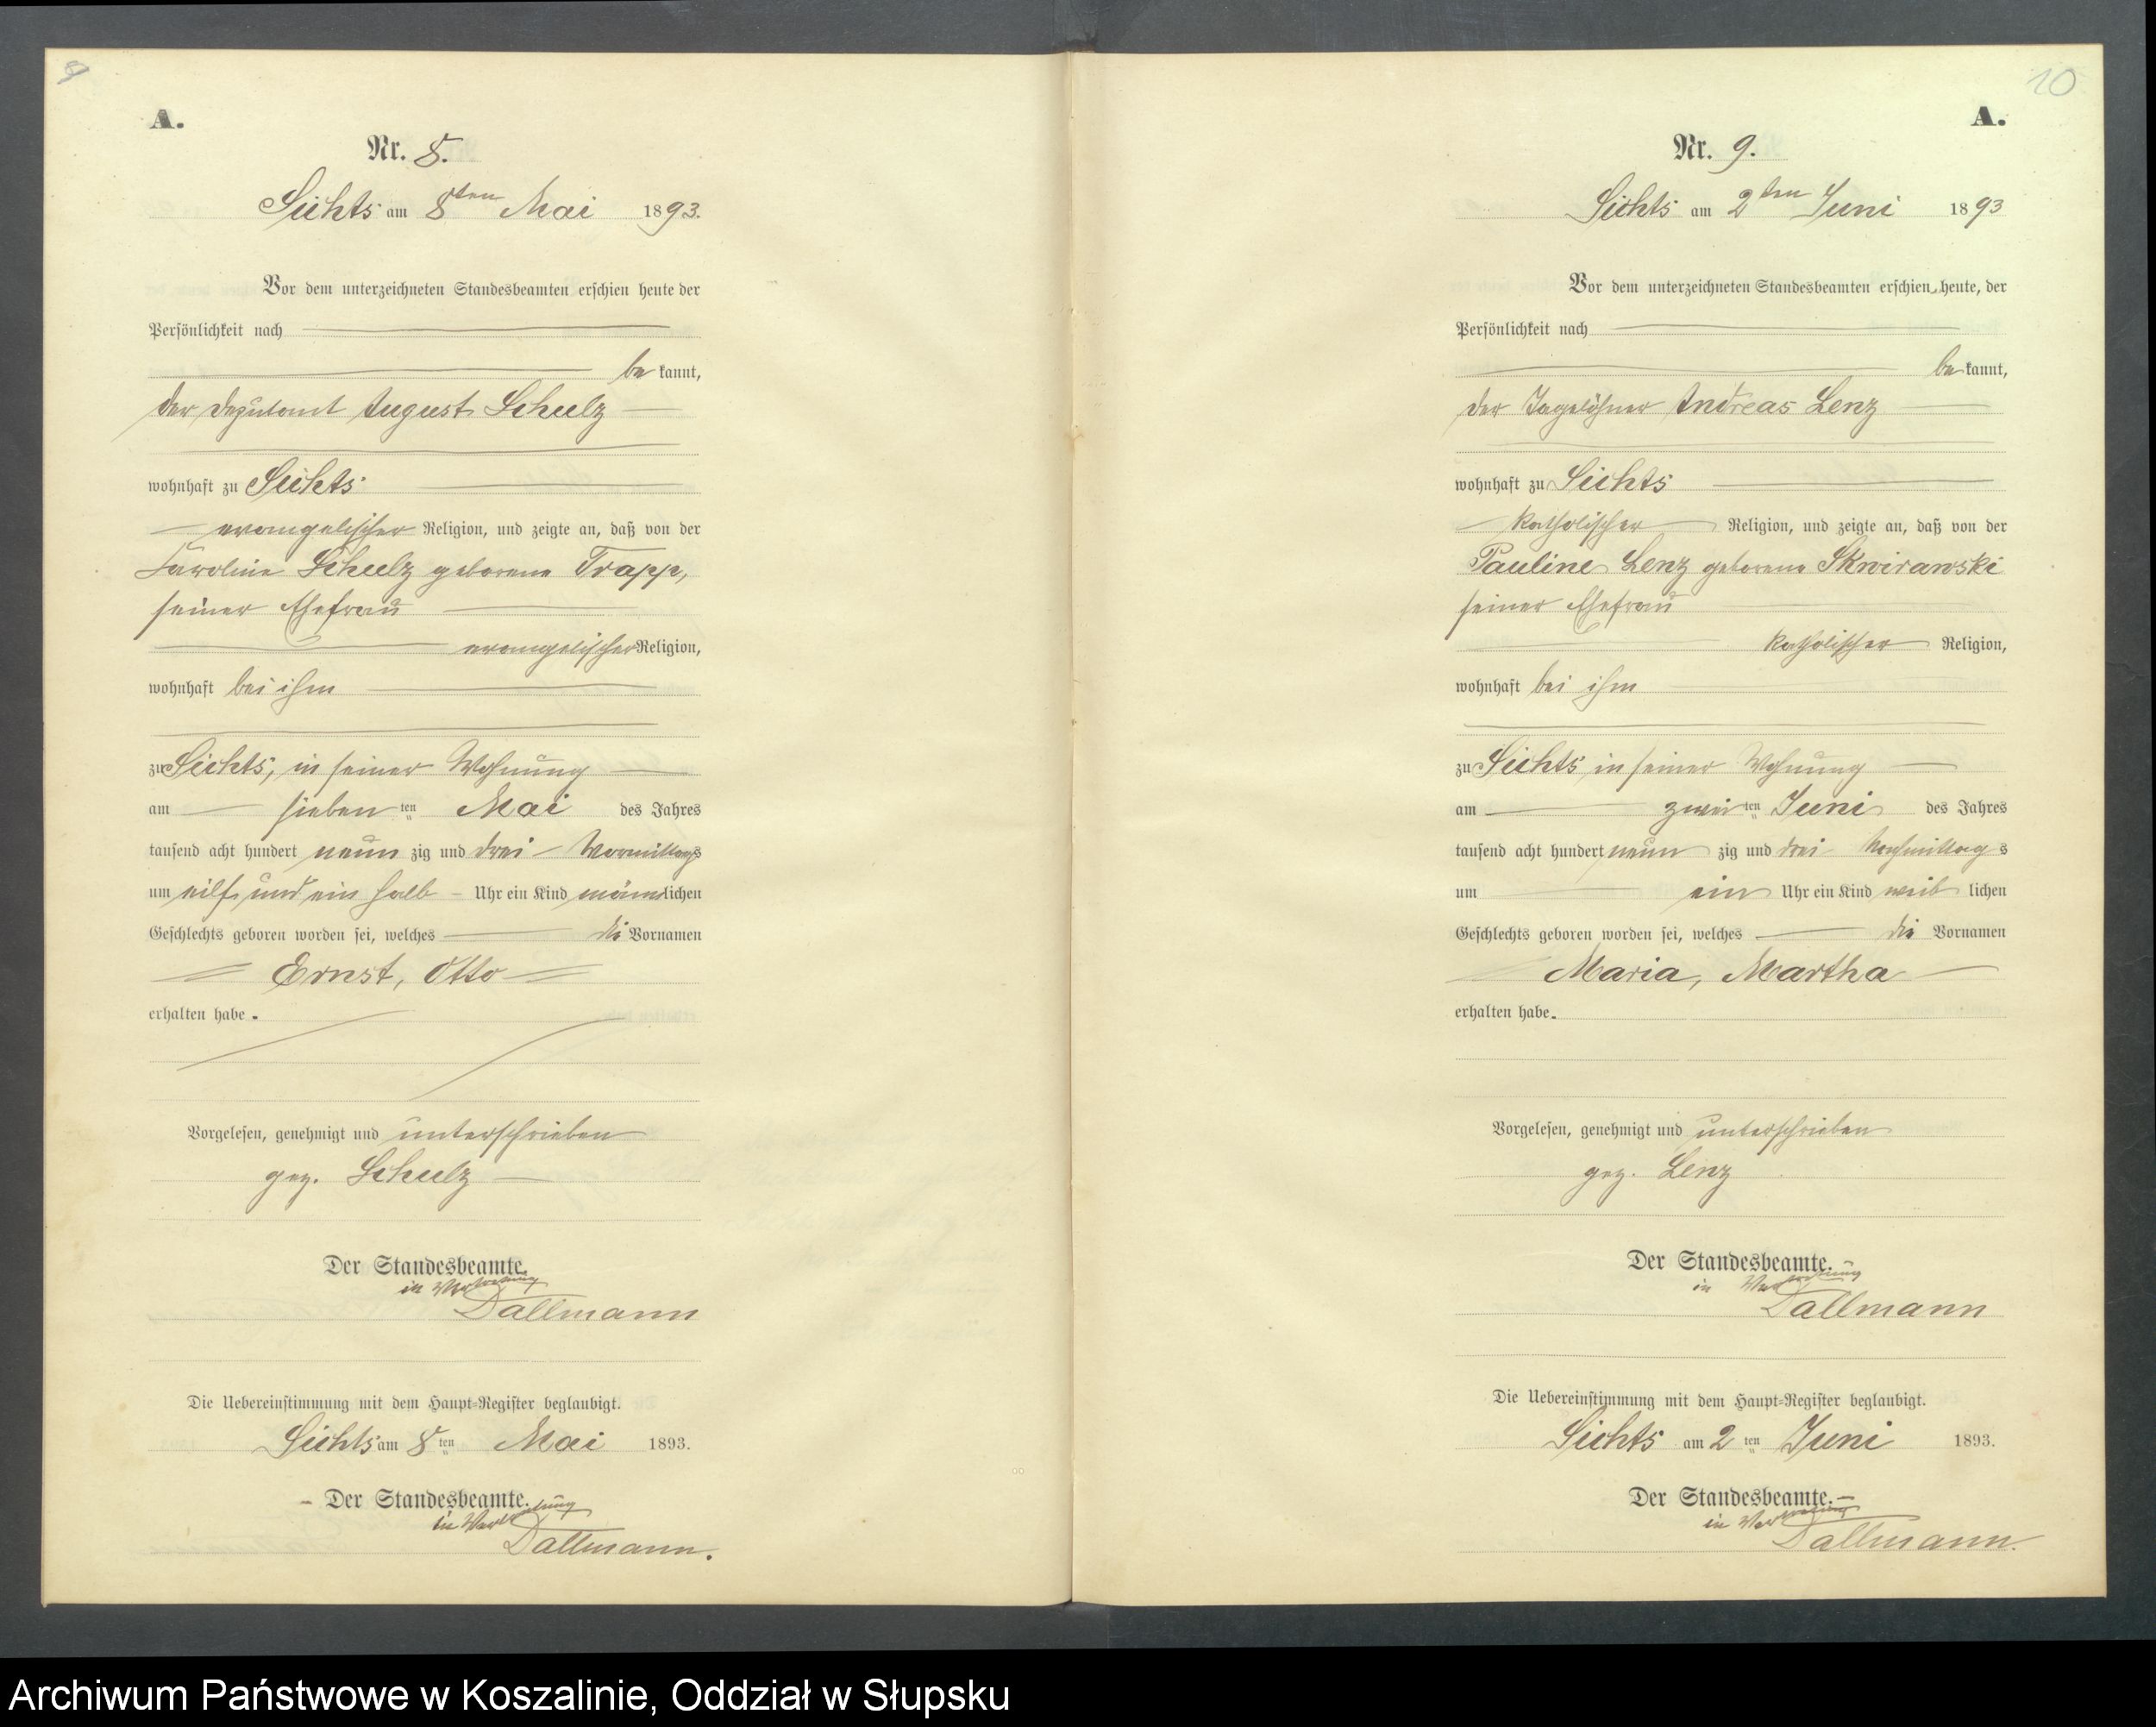 9
A.
Nr. 8.
Sichts am 8ten Mai 1893.
Vor dem unterzeichneten Standesbeamten erschien heute der
Persönlichkeit nach
be kannt,
der Deputant August Schulz
wohnhaft zu Sichts
evangelischer Religion, und zeigte an, daß von der
Caroline Schulz geborene Trapp,
seiner Ehefrau
evangelischer Religion,
wohnhaft bei ihm
zu Sichts, in seiner Wohnung
am sieben ten Mai des Jahres
tausend acht hundert neun zig und drei Vormittags
um eilf und ein halb Uhr ein Kind männlichen
Geschlechts geboren worden sei, welches die Vornamen
Ernst, Otto
erhalten habe.
Vorgelesen, genehmigt und unterschrieben
gez. Schulz
Der Standesbeamte.
in Vertretung
Dallmann
Die Uebereinstimmung mit dem Haupt-Register beglaubigt.
Sichts am 8 ten Mai 1893.
Der Standesbeamte.
in Vertretung
Dallmann.
10
A.
Nr. 9.
Sichts am 2ten Juni 1893
Vor dem unterzeichneten Standesbeamten erschien heute, der
Persönlichkeit nach
be kannt,
der Tagelöhner Andreas Lenz
wohnhaft zu Sichts
katholischer Religion, und zeigte an, daß von der
Pauline Lenz geborene Skwirawski
seiner Ehefrau
katholischer Religion,
wohnhaft bei ihm
zu Sichts in seiner Wohnung
am zwei ten Juni des Jahres
tausend acht hundert neun zig und drei Nachmittag s
um ein Uhr ein Kind weib lichen
Geschlechts geboren worden sei, welches die Vornamen
Maria, Martha
erhalten habe.
Vorgelesen, genehmigt und unterschrieben
gez. Lenz
Der Standesbeamte.
in Vertretung
Dallmann
Die Uebereinstimmung mit dem Haupt-Register beglaubigt.
Sichts am 2 ten Juni 1893.
Der Standesbeamte.
in Vertretung
Dallmann.
Archiwum Państwowe w Koszalinie, Oddział w Słupsku